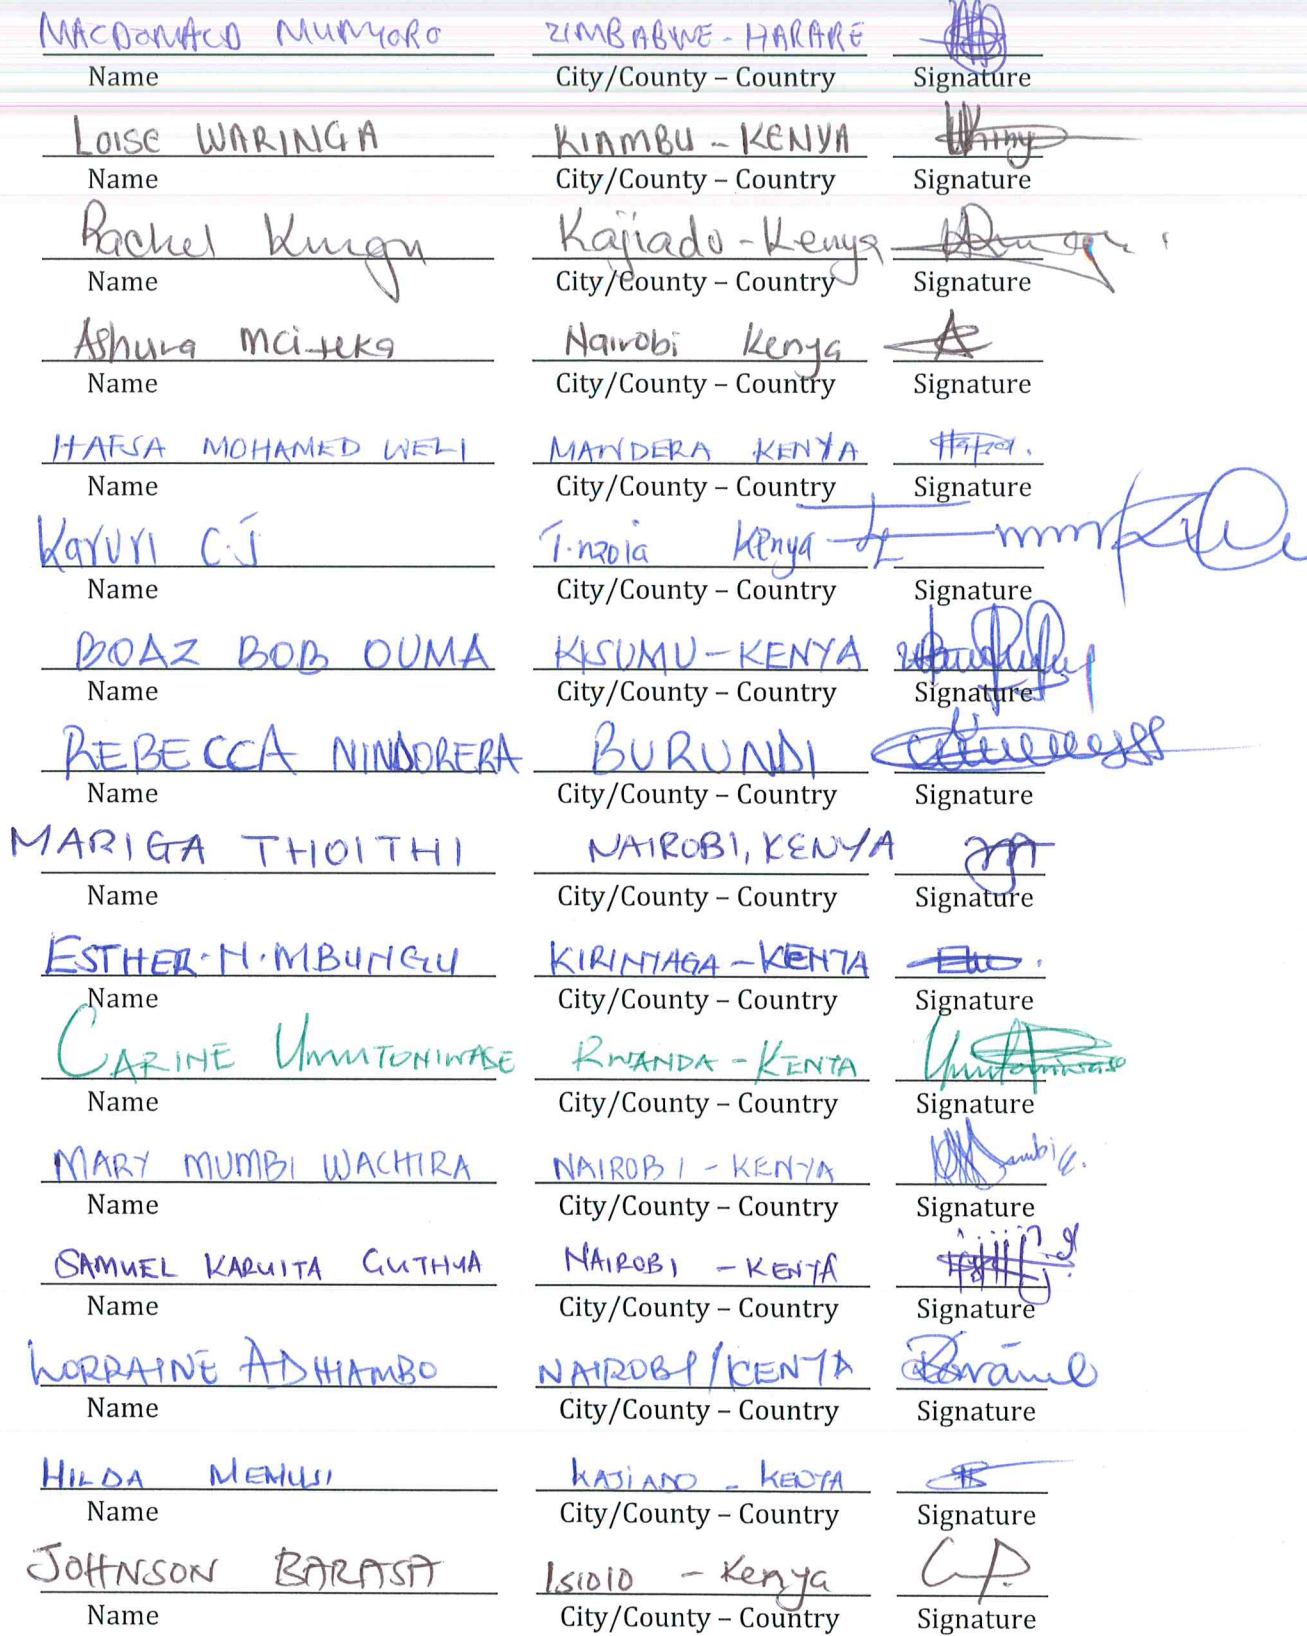 MACDONALD MUNYORO ZIMBABWE - HARARE
Name City/County – Country Signature
LOISE WARINGA KIAMBU - KENYA
Name City/County – Country Signature
Rachel Kajiado - Kenya
Name City/County – Country Signature
Ashura Nairobi Kenya
Name City/County – Country Signature
HAFSA MOHAMED WELI MANDERA KENYA
Name City/County – Country Signature
Karuri C.J T.nzoia Kenya
Name City/County – Country Signature
BOAZ BOB OUMA KISUMU - KENYA
Name City/County – Country Signature
REBECCA NINDORERA BURUNDI
Name City/County – Country Signature
MARIGA THOITHI NAIROBI, KENYA
Name City/County – Country Signature
ESTHER.N.MBUNGU KIRINYAGA - KENYA
Name City/County – Country Signature
CARINE UMUTONIWASE RWANDA - KENYA Umutoniwase
Name City/County – Country Signature
MARY MUMBI WACHIRA NAIROBI - KENYA
Name City/County – Country Signature
SAMUEL KARUITA GUTHUA NAIROBI - KENYA
Name City/County – Country Signature
LORRAINE ADHIAMBO NAIROBI/KENYA
Name City/County – Country Signature
HILDA MEMUSI KAJIADO - KENYA
Name City/County – Country Signature
JOHNSON BARASA Isiolo - Kenya
Name City/County – Country Signature